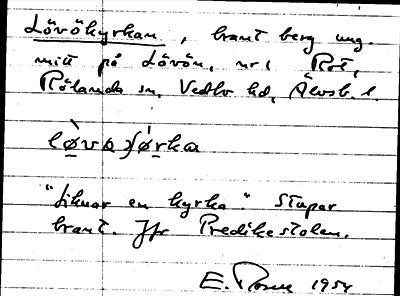 Lövökyrkan, brant berg ung.
mitt på Lövön, nr 1 Rot,
Rölanda sn, Vedbo hd, Älvsb. l.
"Liknar en kyrka" Stupar
brant. Jfr Predikestolen.
1954